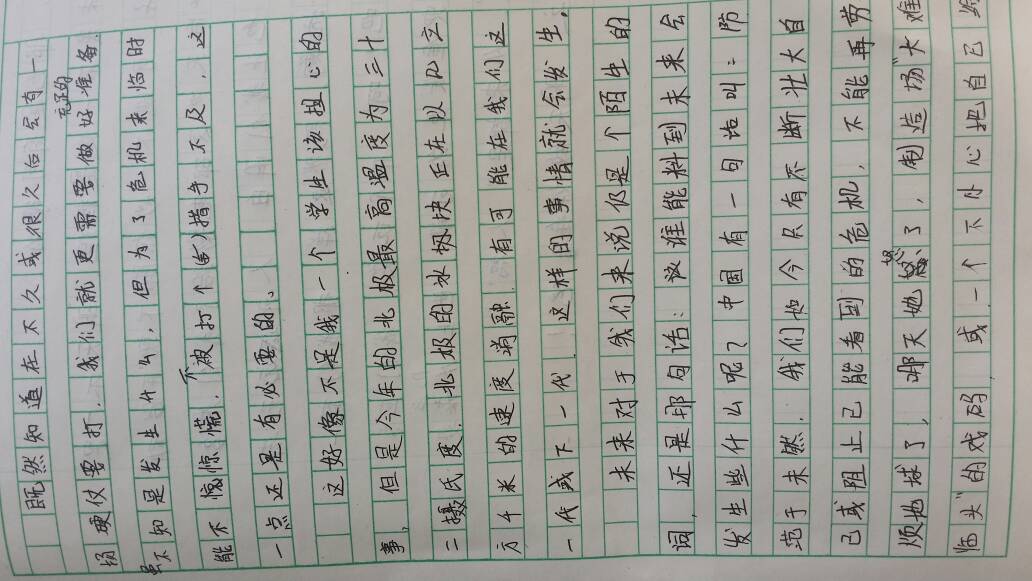 既然知道在不久或很久后会有一
场硬仗要打．我们就更需要做好充足的准备．
虽不知是发生什么，但为了危机来临时
能不惊慌．不被打个(办)措手不及，这
一点还是有必要的、
这好像不是我一个学生该担心的
事，但是今年的北极最高温度为三十
二摄氏度．北极的冰物块正在以亿立
方千米的速度消融．有可能在我们这
一代或下一代．这样的事情就会发生．
未来对于我们来说仍是个陌生的
词，还是那句话：谁能料到未来会
发生些什么呢？中国有一句话叫：防
范于未然．我们如今只有不断壮大自
己或阻止已能看到的危机，不能再劳
烦地球了，哪天她怒了，制造场"大难
临头"的戏码．或一个不小心把自己